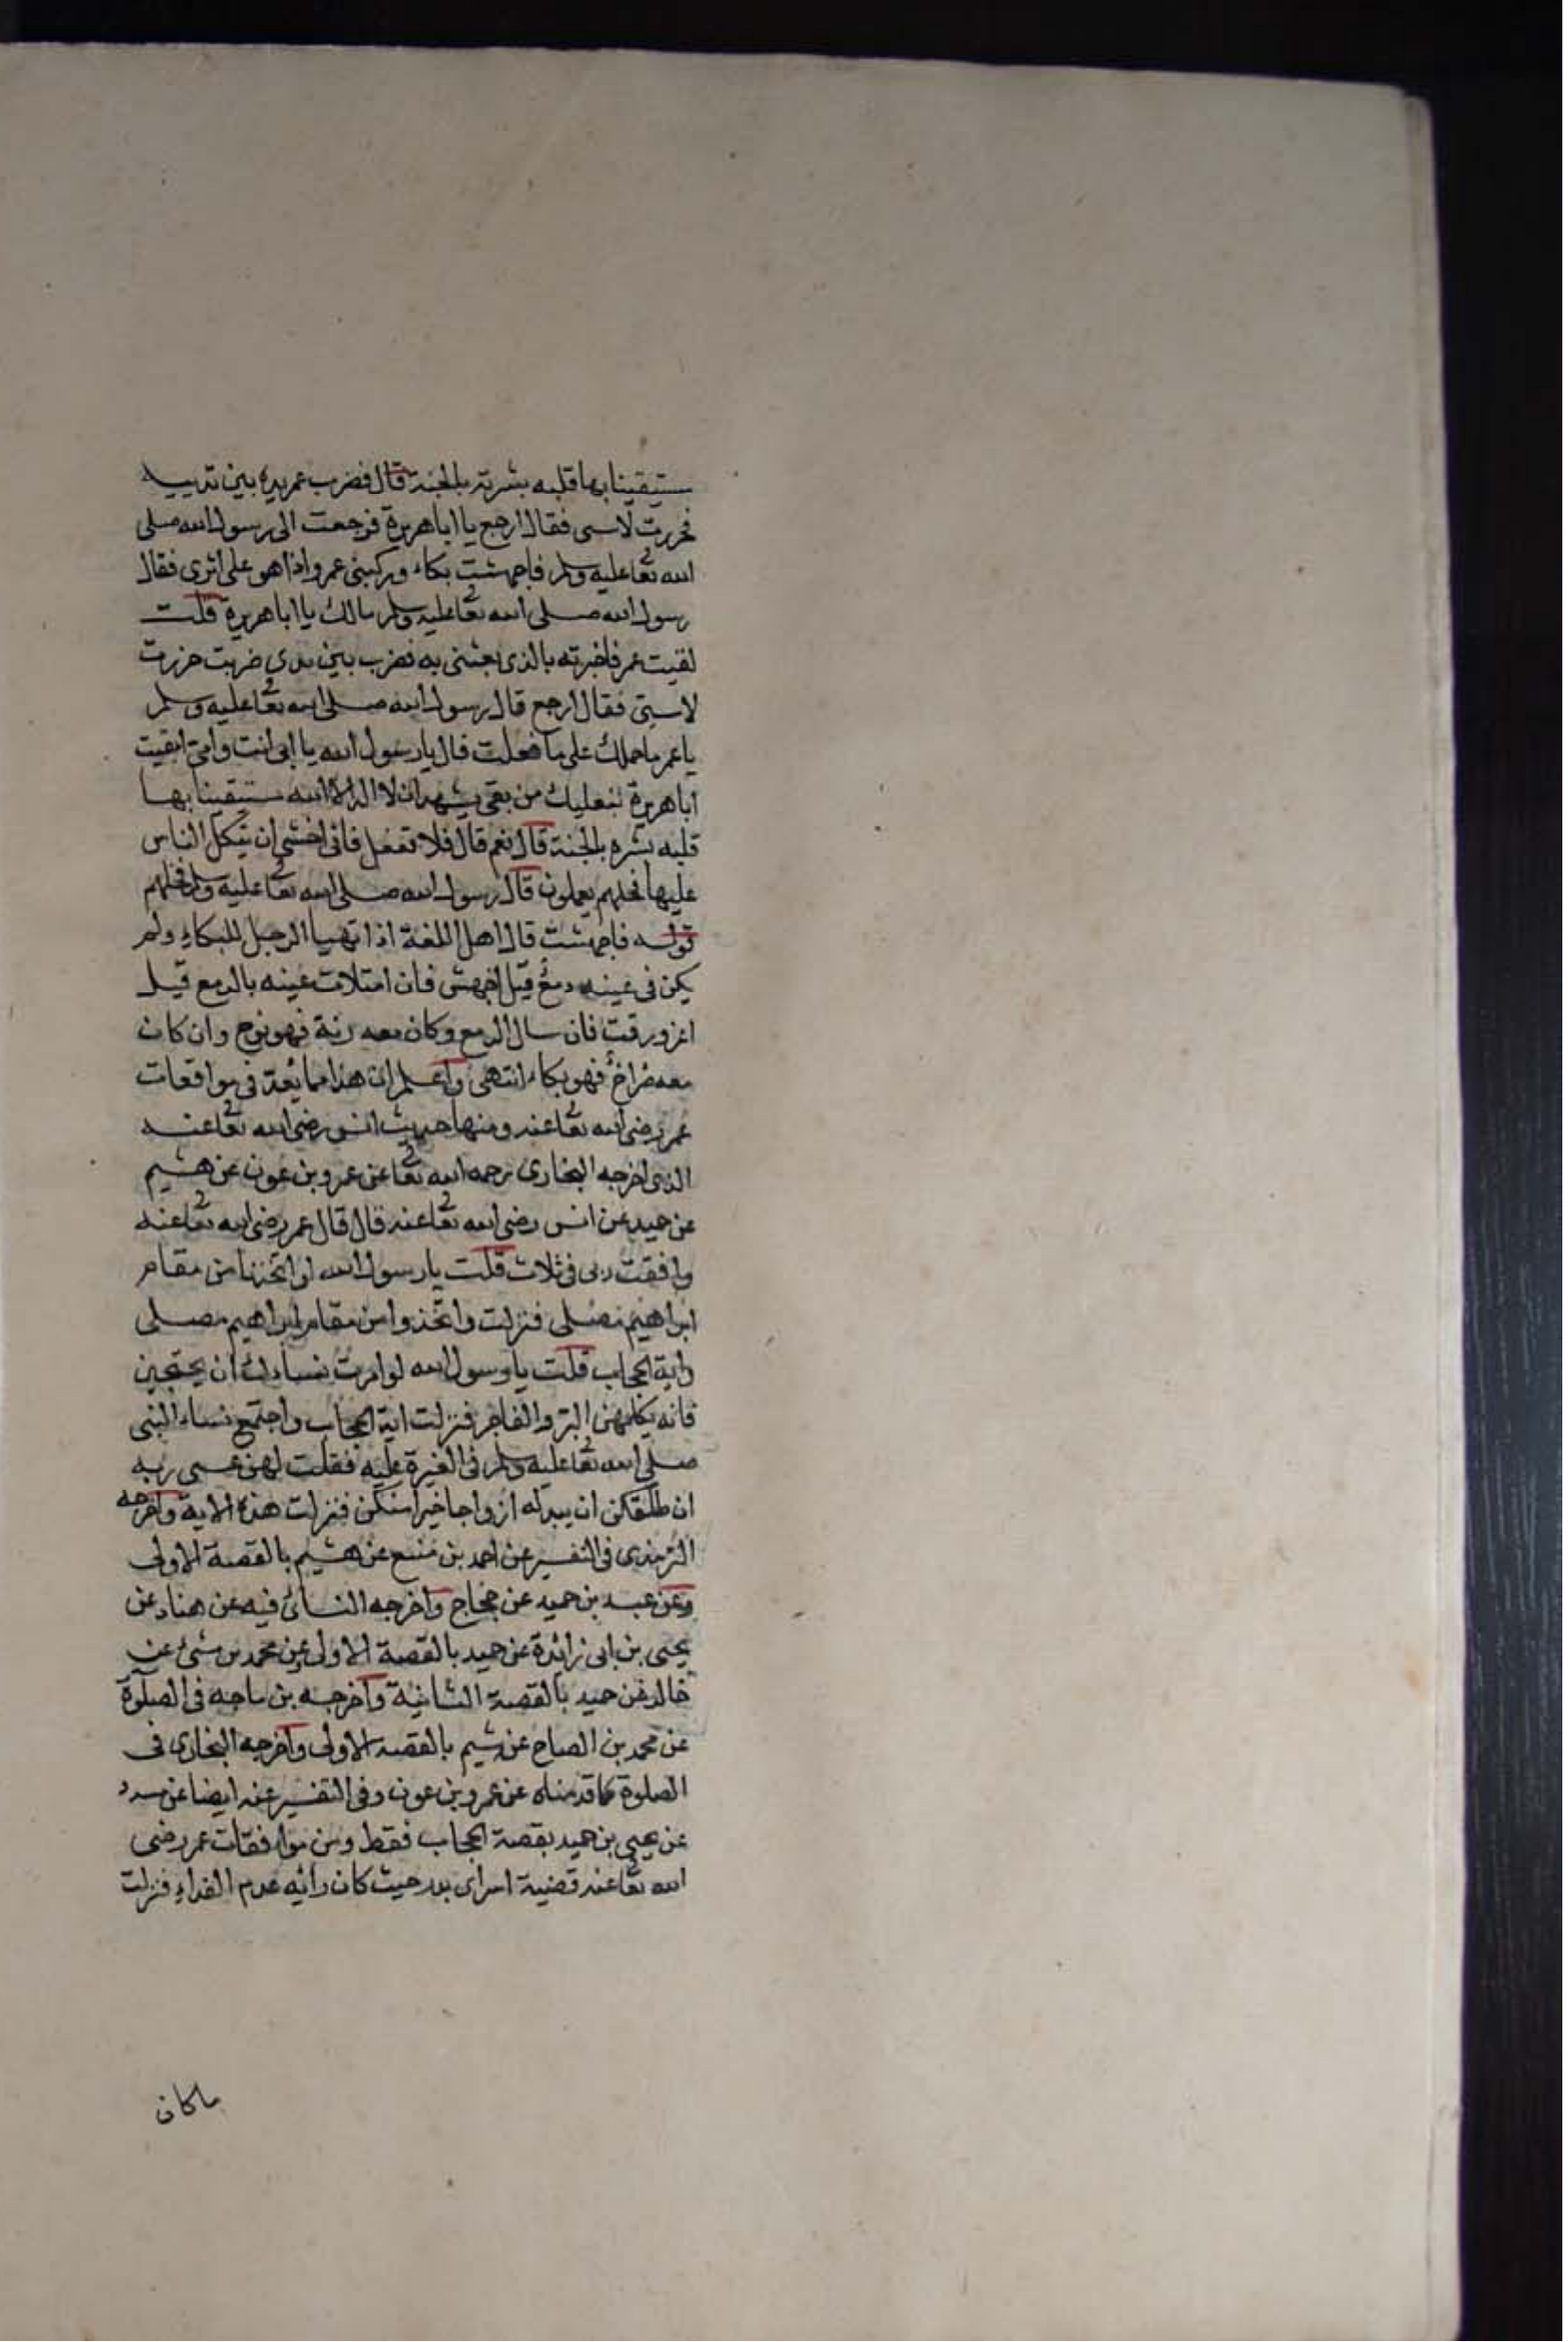 ستيقينا بها قلبه بشرته بالجنة قال فضرب عمر يده بين ثدييه
فخررت لاستى فقال ارجع يا ابا هريرة فرجعت الى رسول الله صلى
الله تعا عليه وسلم فاجهشت بكاء وركبنى عمر واذا هو على اثرى فقال
رسول الله صلى الله تعا عليه وسلم مالك يا ابا هريرة قلت
لقيت عمر فاخبرته بالذى بعثنى به فضرب بين ثدى ضربت خررت
لاستى فقال ارجع قال رسول الله صلى الله تعا عليه وسلم
يا عمر ما حملك على ما فعلت قال يا رسول الله يا ابى انت وامى ابقيت
ابا هريرة بنعليك من بقى يشهد ان لا اله الا الله ستيقينا بها
قلبه بشره بالجنة قال نعم قال فلا تفعل فانى اخشى ان يتكل الناس
عليها فخلهم يعملون قال رسول الله صلى الله تعا عليه وسلم فخلهم
قوله فاجهشت قال اهل اللغة اذا تهيا الرجل للبكاء ولم
يكن فى عينه دمع قيل اجهش فان امتلات عينه بالدمع قيل
اغرورقت فان سال الدمع وكان معه رنة فهو نوح وان كان
معه صراخ فهو بكاء انتهى واعلم ان هذا مما يعد فى موافقات
عمر رضى الله تعا عنه ومنها حديث انس رضى الله تعا عنه
الذى اخرجه البخارى رحمه الله تعا عن عمرو بن عون عن هشيم
عن حميد عن انس رضى الله تعا عنه قال قال عمر رضى الله تعا عنه
وافقت ربى فى ثلاث قلت يا رسول الله لو اتخذنا من مقام
ابراهيم مصلى فنزلت واتخذوا من مقام ابراهيم مصلى
واية الحجاب قلت يا رسول الله لو امرت نساءك ان يحتجبن
فانه يكلمهن البر والفاجر فنزلت اية الحجاب واجتمع نساء النبى
صلى الله تعا عليه وسلم فى الغيرة عليه فقلت لهن عسى ربه
ان طلقكن ان يبدله ازواجا خيرا منكن فنزلت هذه الاية واخرجه
الترمذى فى التفسير عن احمد بن منيع عن هشيم بالقصة الاولى
وعن عبد بن حميد عن حجاج واخرجه النسائى فيه عن هناد عن
يحيى بن ابى زائدة عن حميد بالقصة الاولى وعن محمد بن مثنى عن
خالد عن حميد بالقصة الثانية واخرجه بن ماجه فى الصلوة
عن محمد بن الصباح عن شيم بالقصة الاولى واخرجه البخارى فى
الصلوة كما قدمناه عن عمرو بن عون وفى التفسير عنه ايضا عن مسدد
عن يحيى بن حميد بقصة الحجاب فقط ومن موافقات عمر رضى
الله تعا عنه قضية اسراى بدر حيث كان رائيه عدم الفداء فنزلت
ماكان